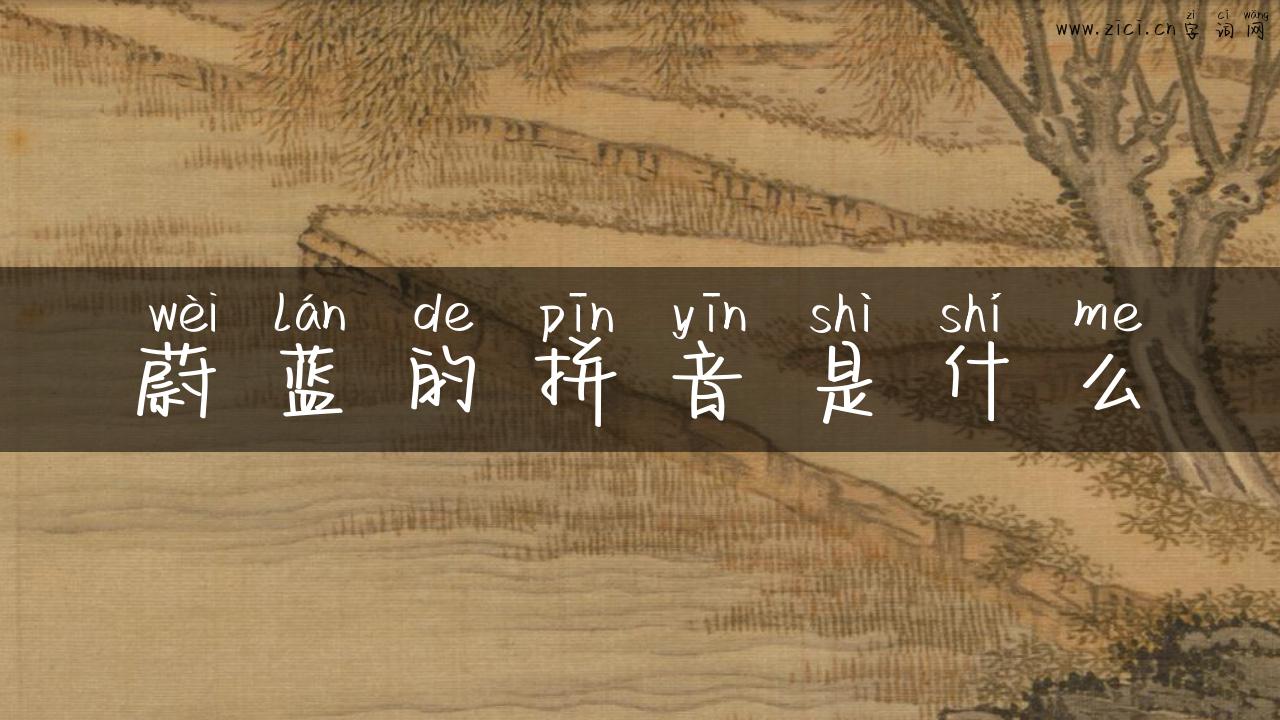 zì cí wǎng
www.zici.cn字词网
wèi lán de pīn yīn shì shí me
蔚蓝的拼音是什么